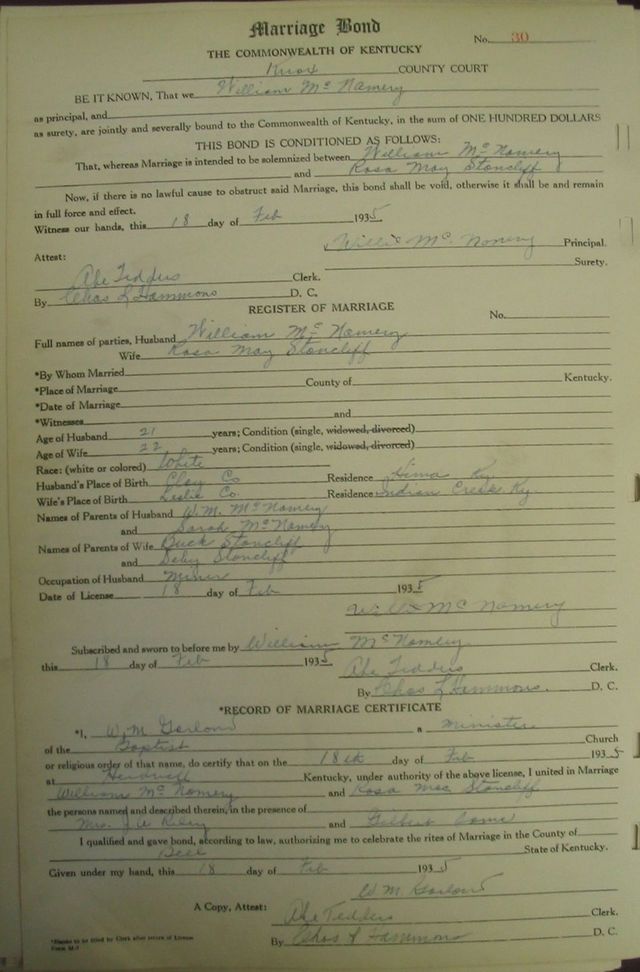 Marriage Bond
No. 30
THE COMMONWEALTH OF KENTUCKY
Knox COUNTY COURT
BE IT KNOWN, That we William Mc Namery
as principal, and
as surety, are jointly and severally bound to the Commonwealth of Kentucky, in the sum of ONE HUNDRED DOLLARS
THIS BOND IS CONDITIONED AS FOLLOWS:
That, whereas Marriage is intended to be solemnized between William Mc Namery
and Rosa May Stoncliff
Now, if there is no lawful cause to obstruct said Marriage, this bond shall be void, otherwise it shall be and remain
in full force and effect.
Witness our hands, this 18 day of Feb 1935
Willie Mc Nomery Principal.
Attest: Surety.
Abe Tedders Clerk.
By Chas L Hammons D. C.
REGISTER OF MARRIAGE
No.
Full names of parties, Husband William Mc Namery
Wife Rosa May Stoncliff
*By Whom Married
*Place of Marriage County of Kentucky.
*Date of Marriage
*Witnesses and
Age of Husband 21 years; Condition (single, widowed, divorced)
Age of Wife 22 years; Condition (single, widowed, divorced)
Race: (white or colored) White
Husband's Place of Birth Clay Co Residence Hima Ky
Wife's Place of Birth Leslie Co. Residence Indian Creek Ky.
Names of Parents of Husband W.M. McNamery
and Sarah McNamery
Names of Parents of Wife Buck Stoncliff
and Stoncliff
Occupation of Husband Miner
Date of License 18 day of Feb 1935
Willie Mc Namery
Subscribed and sworn to before me by William McNamery
this 18 day of Feb 1935 Abe Tedders Clerk.
By Chas L Hammons. D. C.
*RECORD OF MARRIAGE CERTIFICATE
*I, W.M. Garland a Minister
of the Baptist Church
or religious order of that name, do certify that on the 18th day of Feb 1935
at Kentucky, under authority of the above license, I united in Marriage
William Mc Namery and Rosa Mae Stoncliff
the persons named and described therein, in the presence of
Mrs. and
I qualified and gave bond, according to law, authorizing me to celebrate the rites of Marriage in the County of
Bell State of Kentucky.
Given under my hand, this 18 day of Feb 1935
W M Garland
A Copy, Attest: Abe Tedders Clerk.
By Chas L Hammons D. C.
*Blanks to be filled by Clerk after return of License
Form M-7